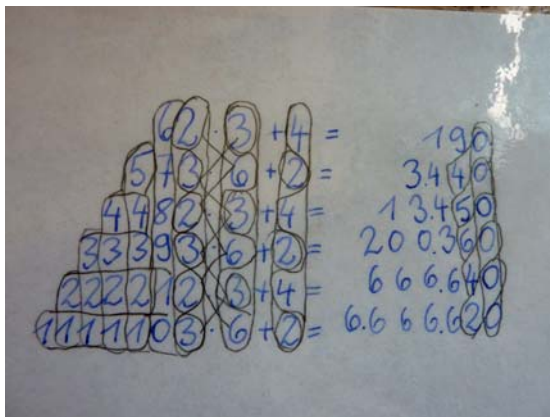 62 · 3 + 4 = 190
573 · 6 + 2 = 3.440
4482 · 3 + 4 = 13.450
33393 · 6 + 2 = 200.360
222212 · 3 + 4 = 666.640
1111103 · 6 + 2 = 6.666.620